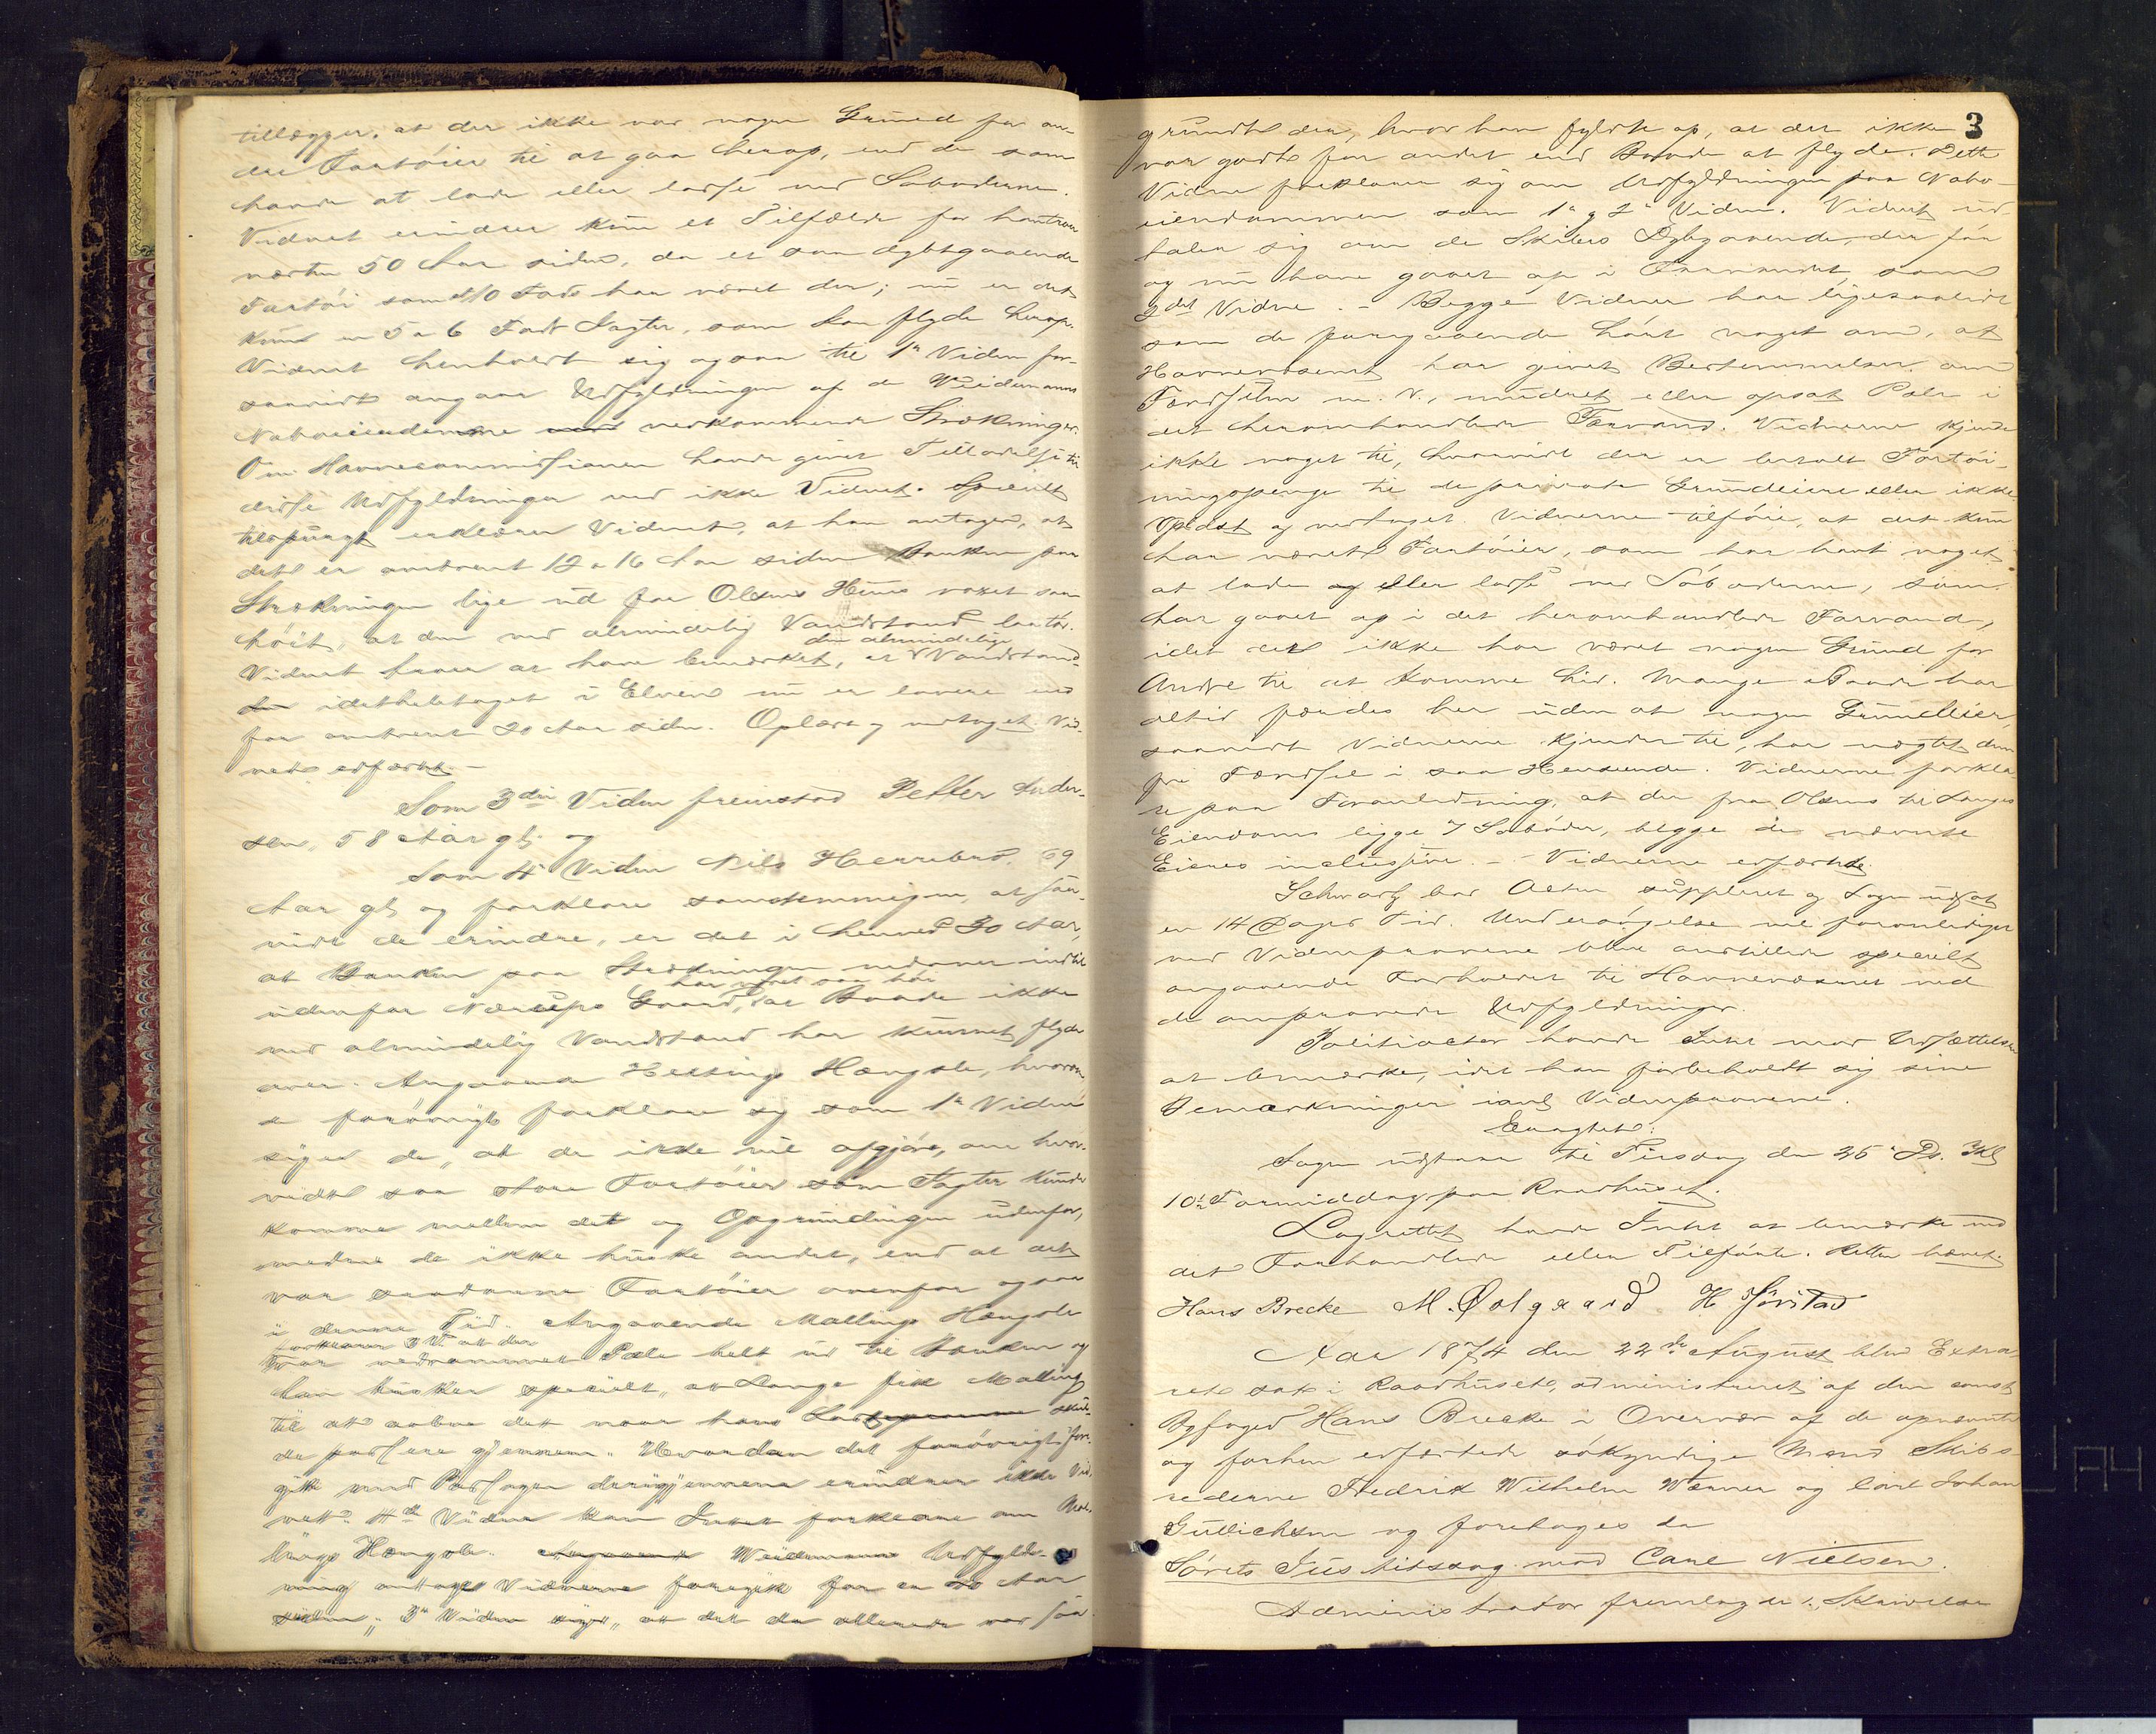 tillægger, at der ikke var nogen Grund for an-
dre Fartøier til at gaa herop, end de som
havde at lade eller losse ved Søboderne.
Vidnet erindrer kun et Tilfælde for
næsten 50 Aar siden, da et saa dybtgaaende
Fartøi som 10 Fod har været der; nu er det
kun en 5 a 6 Fods Jagter, som kan flyde herop.
Vidnet henholdt sig ogsaa til 1ste Vidne for-
saavidt angaar Udfyldningen af de Weidemanns
Naboeiendomme vedkommende Strækninger.
Om Havnecommissionen havde givet Tilladelse til
disse Udfyldninger ved ikke Vidnet. Specielt
tilspurgt erklærer Vidnet, at han antager, at
det er omtrent 12 a 16 Aar siden Banken paa
Strækningen lige ud for Olsens Huus voxet saa
høit, at den ved almindelig Vandstand laa tør.
Vidnet troer at have bemærket, at den almindelige Vandstand
idetheletaget i Elven nu er lavere end
for omtrent 20 Aar siden. Oplæst og vedtaget. Vid-
net afførtet. –
Som 3die Vidne fremstod Petter Ander-
sen, 58 Aar gl. og
Som 4de Vidne Nils Herrebrø, 69
Aar gl. og forklare samstemmigen, at saa-
vidt de erindre, er det i henved 30 Aar,
at Banken paa Strækningen nedover indtil
udenfor Nærups Gaard, har været saa høi at Baade ikke
ved almindelig Vandstand har kunnet flyde
over. Angaaende Hellings Hængsle, hvorom
de forøvrigt forklare sig som 1ste Vidne
siger de, at de ikke vil afgjøre, om hvor-
vidt saa store Fartøier som Jagter kunde
komme mellem det og Opgrundingen udenfor,
medens de ikke huske andet, end at det
var saadanne Fartøier ovenfor ogsaa
i denne Tid. Angaaende Mallings Hængsle
forklarer 3 V. at der var nedrammet Pæle helt ud til Banken og
han husker specielt, at Lange fik Malling
til at aabne det naar hans skul-
de passere gjennem. Hvordan det forøvrigt fore-
gik med Passagen derigjennem erindrer ikke Vid-
net. 4de Vidne kan Intet forklare om Mal-
lings Hængsle. Weidemanns Udfyld-
ning antager Vidnerne foregik for en 20 Aar
siden; 3die Vidne siger, at det da allerede var saa
3
grundt der, hvor han fyldte op, at det ikke
var godt for andet end Baade at flyde. Dette
Vidne forklarer sig om Udfyldningen paa Nabo-
eiendommen som 1ste og 2det Vidne. Vidnet ud-
taler sig om de Skibes Dybgaaende, der før
og nu have gaaet op i Farvandet, som
2det Vidne. – Begge Vidner har ligesaalidt
som de foregaaende hørt noget om, at
Havnevæsenet har givet Bestemmelser om
Færdselen m. V., mudret eller opsat Pæle i
det heromhandlede Farvand. Vidnerne kjende
ikke noget til, hvorvidt der er betalt Fortøi-
ningspenge til de private Grundeiere eller ikke.
Oplæst og vedtaget. Vidnerne tilføie, at det kun
har været Fartøier, som har havt noget
at lade eller losse ved Søboderne, som
har gaaet op i det heromhandlede Farvand,
idet det ikke har været nogen Grund for
Andre til at komme hid. Mange Baade har
altid færdes her uden at nogen Grundeier,
saavidt Vidnerne kjender til, har nægtet dem
fri Færdsel i saa Henseende. Vidnerne forkla-
re paa Foranledning, at der fra Olsens til Langes
Eiendoms ligge 7 Søboder, begge de nævnte
Eieres inclusive. – Vidnerne afførtede.
Schwartz bad Acten suppleret og Sagen udsat
en 14 Dages Tid. Undersøgelse vil foranlediges
ved Vidneprovene blive anstillede specielt
angaaende Forholdet til Havnevæsenet ved
de ompravede Udfyldninger.
Politiactor havde Intet mod Udsættelsen
at bemærke, idet han forbeholdt sig sine
Bemærkninger ianl. Vidneprovene.
Eragtet:
Sagen udstaar til Tirsdag den 25 ds. Kl
10 Formiddag paa Raadhuset.
Lagrettet havde Intet at bemærke ved
det Forhandlede eller Tilførte. Retten hævet.
Hans Brecke M. Qolgaard H Sørstad
Aar 1874 den 22de August blev Extra-
ret sat i Raadhuset, administreret af den const
Byfoged Hans Brecke i Overvær af de opnævnte
og forhen edfæstede søkyndige Mænd Skibs-
rederne Fredrik Wilhelm Werner og Carl Johan
Gullichsen og foretoges da
Sørets Justitssag mod Carl Nielsen.
Administrator fremlagde 1, Skrivelse